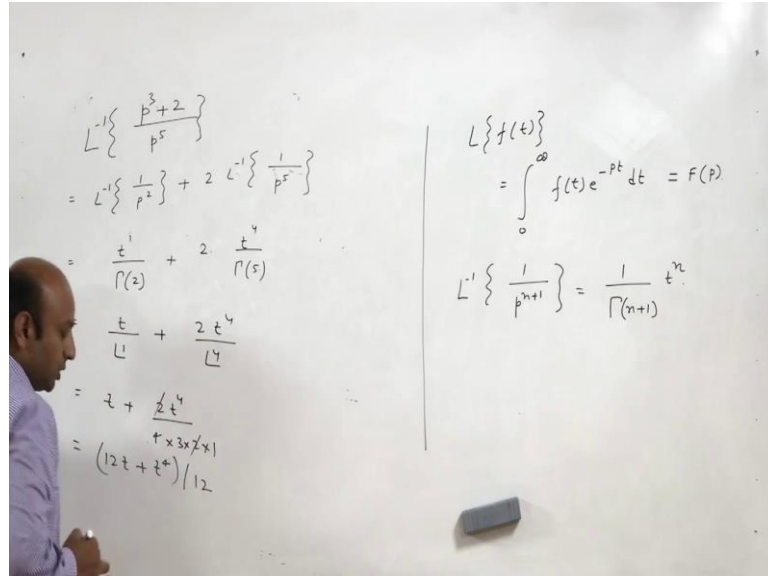 L⁻¹{ (p³+2)/p⁵ }
= L⁻¹{ 1/p² } + 2 L⁻¹{ 1/p⁵ }
= t¹/Γ(2) + 2. t⁴/Γ(5)
t/L1 + 2t⁴/L4
= t + 2t⁴/(4×3×2×1)
= (12t + t⁴)/12
L{f(t)}
= ∫₀^∞ f(t) e^(-pt) dt = F(p)
L⁻¹{ 1/p^(n+1) } = 1/Γ(n+1) tⁿ.